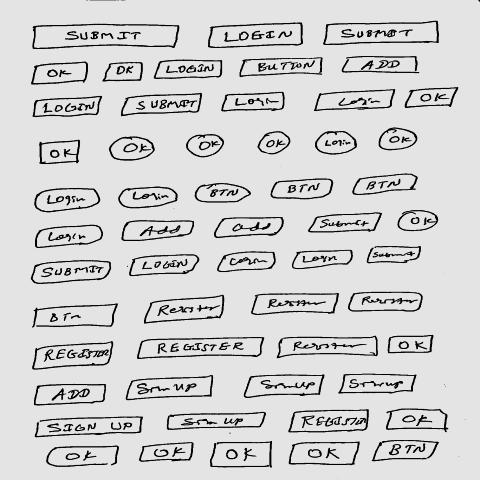 SUBMIT LOGIN SUBMIT
OK OK LOGIN BUTTON ADD
LOGIN SUBMIT Login Login OK
OK OK OK OK Login OK
Login Login BTN BTN BTN
Login Add add Submit OK
SUBMIT LOGIN Login Login Submit
BTn Register Register Register
REGISTER REGISTER Register OK
ADD SignUp SignUp SignUp
SIGN UP Sign Up REGISTER OK
OK OK OK OK BTN